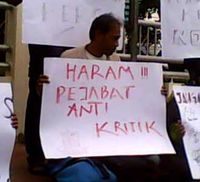 HARAM !!!
PEJABAT
ANTI
KRITIK